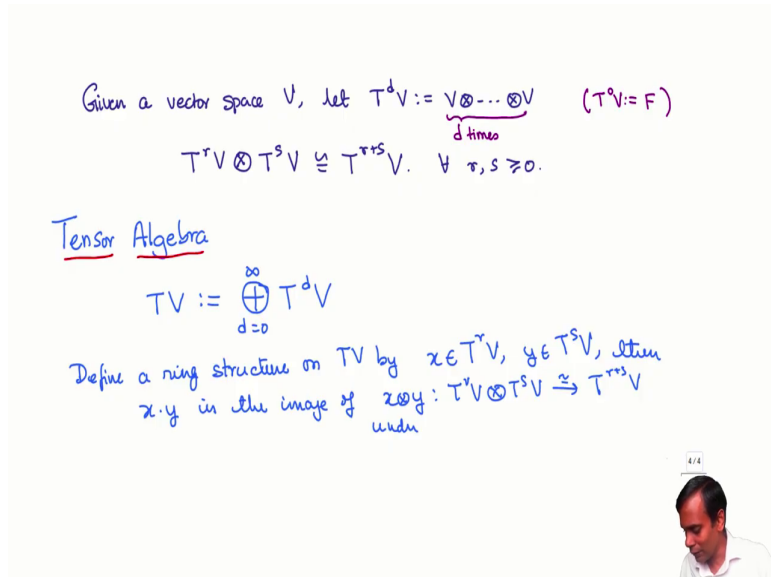 Given a vector space V, let TᵈV := V⊗---⊗V (T⁰V := F)
d times
TʳV ⊗ TˢV ≅ Tʳ⁺ˢV. ∀ r, s ≥ 0.
Tensor Algebra
TV := ⊕_{d=0}^{∞} TᵈV
Define a ring structure on TV by x ∈ TʳV, y ∈ TˢV, then
x.y is the image of x⊗y : TʳV ⊗ TˢV ≅→ Tʳ⁺ˢV
under
4/4